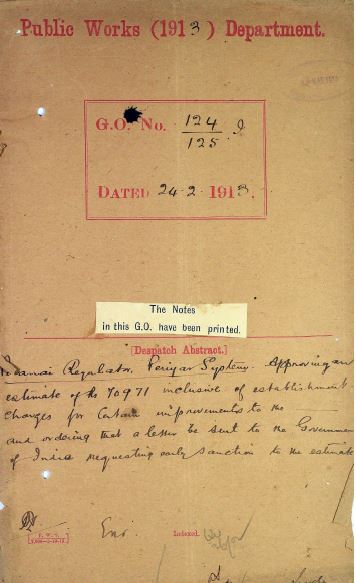 Public Works (1913) Department.
G.O. No. 124 I
125
DATED 24-2-1913.
The Notes
in this G.O. have been printed.
[Despatch Abstract.]
Regulator. Periyar System. Approving an
estimate of Rs 70971 inclusive of establishment
charges for certain improvements to the
and ordering that a letter be sent to the Government
of India requesting early sanction to the estimate
Indexed.